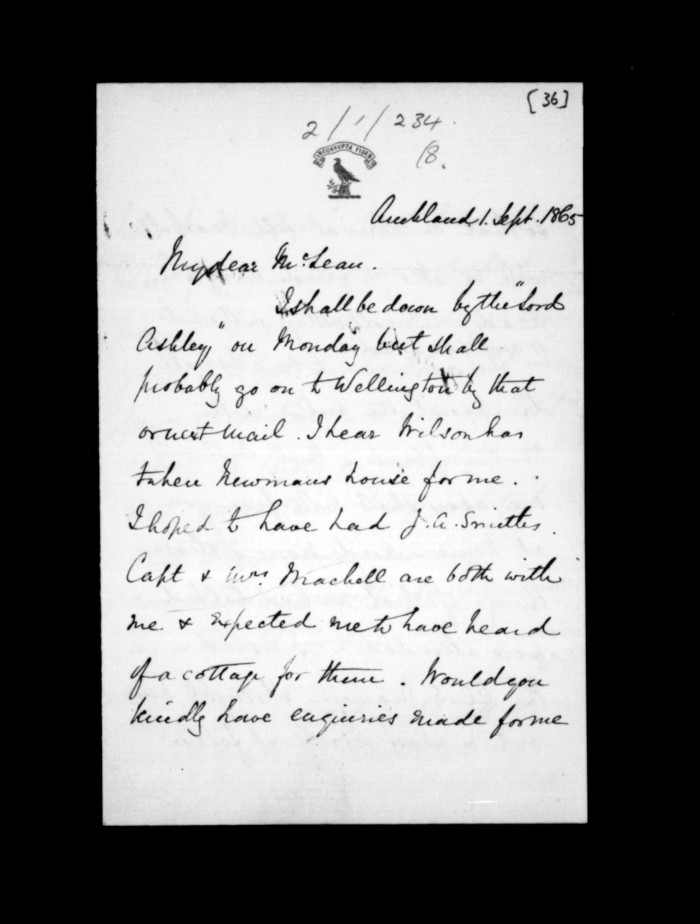 [36]
2/1/234.
18.
INCORRUPTA FIDES
Auckland 1. Sept. 1865
My dear McLean.
I shall be down by the "Lord
Ashley" on Monday but shall
probably go on to Wellington by that
or next mail. I hear Wilson has
taken Newmans house for me.
I hoped to have had J. A. Smiths.
Capt & Mrs Machell are both with
me. & expected me to have heard
of a cottage for them. Would you
kindly have enquiries made for me